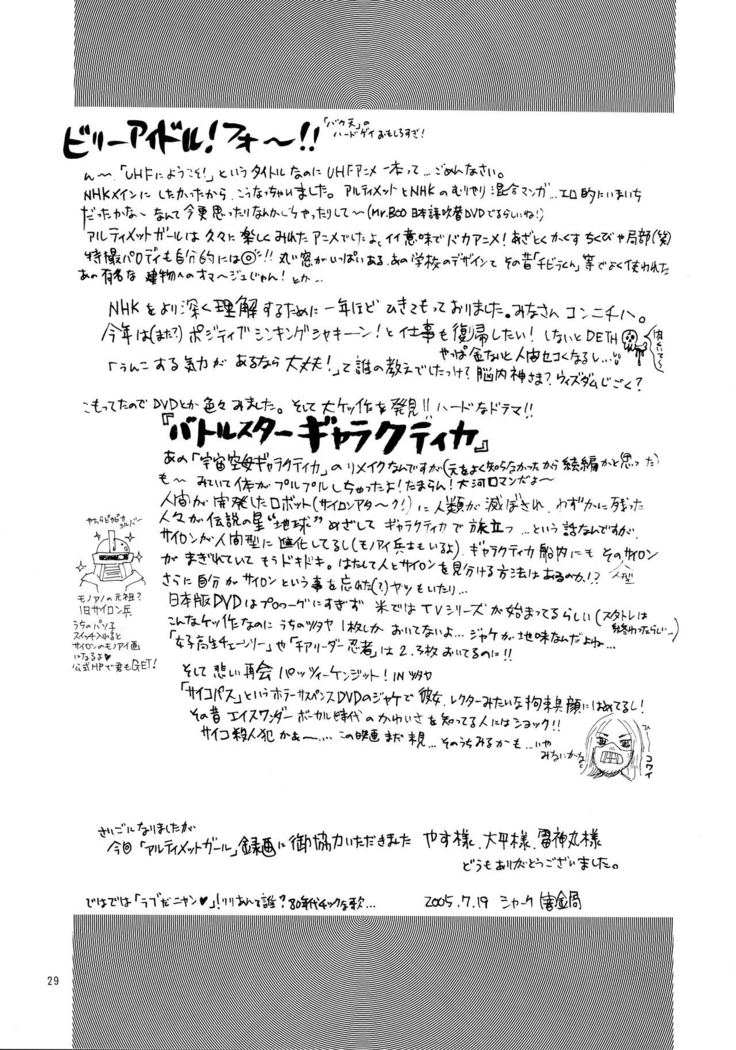 ビリーアイドル!フォ〜!!
「バク天」の
ハードゲイ おもしろすぎ!
ん〜.「UHFにようこそ!」というタイトルなのにUHFアニメ一本って...ごめんなさい。
NHKメインにしたかったから、こうなっちゃいました。アルティメットとNHKのむりやり混合マンガ...エロ的にいまいち
だったかな〜なんて今更思ったりなんかしちゃったりして〜(Mr.Boo 日本語吹替DVDでるらしいね!)
アルティメットガールは久々に楽しくみれたアニメでしたよ、イイ意味でバカアニメ!あざとくかくすちくびや局部(笑)
特撮パロディも自分的には◎!!丸い窓がいっぱいある、あの学校のデザインて その昔「チビラくん」等でよく使われた
あの有名な 建物へのオマージュじゃん!とか...
NHKをより深く理解するために一年ほど ひきこもっておりました。みなさん コンニチハ。
今年は(また?)ポジティブシンキングシャキーン!と仕事も復帰したい!しないとDETH
やっぱ金ないと人間セコくなるし...
「うんこする気力があるなら大丈夫!」て誰の教えでしたっけ?脳内神さま?ウィズダムじごく?
こもってたのでDVDとか色々みました。そして大ケッ作を発見!!ハードなドラマ!!
『バトルスターギャラクティカ』
あの「宇宙空母ギャラクティカ」のリメイクなんですが(元をよく知らなかったから続編かと思った)
も〜みていて体がプルプルしちゃったよ!たまらん!大河ロマンだよ〜
人間が開発したロボット(サイロンアタ〜ク!)に人類が滅ぼされ、わずかに残った
人々が伝説の星"地球"めざしてギャラクティカで旅立つ...という話なんですが、
サイロンが人間型に進化してるし(モノアイ兵士もいるよ).ギャラクティカ船内にもそのサイロン
人型
がまぎれていてもうドキドキ。はたして人とサイロンを見分ける方法はあるのか!?
さらに自分がサイロンという事を忘れた(?)ヤツもいたり...
日本版DVDはプロローグにすぎず 米ではTVシリーズが始まってるらしい(スタトレは
終わったらしい...)
こんなケッ作なのにうちのツタヤ1枚しかおいてないよ...ジャケが地味なんだよね...
「女子高生チェーンソー」や「チアリーダー忍者」は2.3枚おいてるのに!!
やたらピカピカ
シルバー
モノアイの元祖?
旧サイロン兵
うちのパソ子
スイッチ入れると
サイロンのモノアイ画
になるよ♥
公式HPで君もGET!
そして悲しい再会 パッツィーケンジット!INツタヤ
「サイコパス」というホラーサスペンスDVDのジャケで彼女、レクターみたいな拘束具顔にはめてるし!
その昔 エイスワンダー ボーカル時代のかわいさを知ってる人にはショック!!
サイコ殺人犯かぁ〜.... この映画まだ未見...そのうちみるかも...いや
みないかな
ひー
コワイ
さいごになりましたが
今回「アルティメットガール」録画に御協力いただきました やす様、大平様、雷神丸様
どうもありがとうございました。
ではでは「ラブだニャン♥」!りりあんて誰?80年代チックな歌...
2005.7.19 シャーク
29